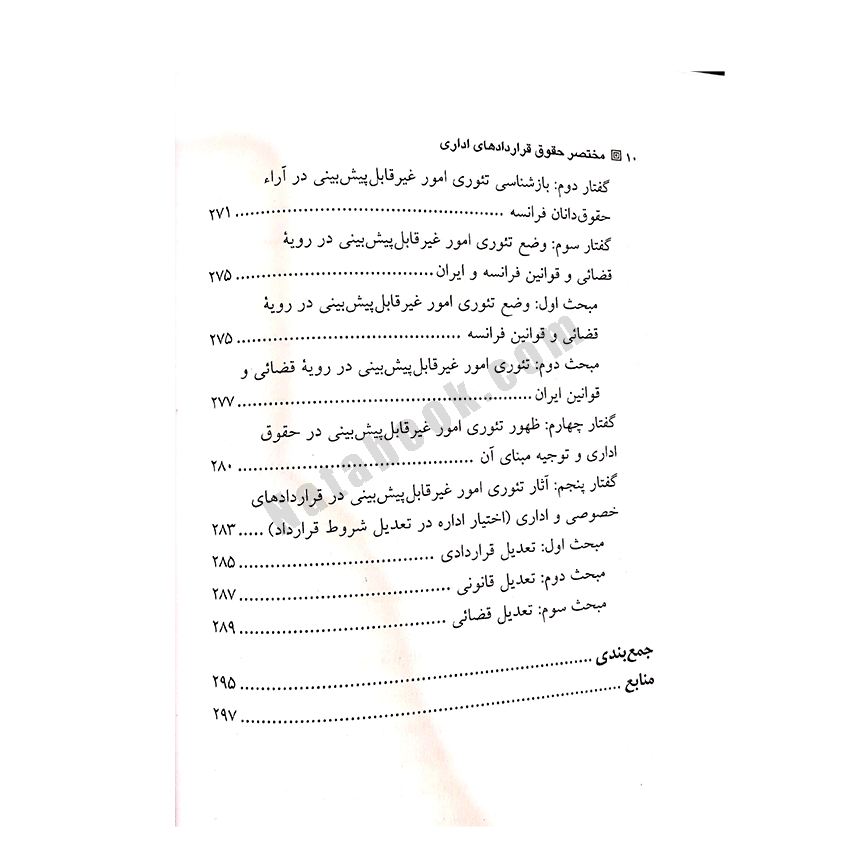 ۱۰ مختصر حقوق قراردادهای اداری
گفتار دوم: بازشناسی تئوری امور غیرقابل‌پیش‌بینی در آراء
حقوق‌دانان فرانسه ........................................ ۲۷۱
گفتار سوم: وضع تئوری امور غیرقابل‌پیش‌بینی در رویهٔ
قضائی و قوانین فرانسه و ایران .................................. ۲۷۵
مبحث اول: وضع تئوری امور غیرقابل‌پیش‌بینی در رویهٔ
قضائی و قوانین فرانسه ........................................ ۲۷۵
مبحث دوم: تئوری امور غیرقابل‌پیش‌بینی در رویهٔ قضائی و
قوانین ایران .................................................. ۲۷۷
گفتار چهارم: ظهور تئوری امور غیرقابل‌پیش‌بینی در حقوق
اداری و توجیه مبنای آن ........................................ ۲۸۰
گفتار پنجم: آثار تئوری امور غیرقابل‌پیش‌بینی در قراردادهای
خصوصی و اداری (اختیار اداره در تعدیل شروط قرارداد) ..... ۲۸۳
مبحث اول: تعدیل قراردادی .................................. ۲۸۵
مبحث دوم: تعدیل قانونی .................................... ۲۸۷
مبحث سوم: تعدیل قضائی .................................... ۲۸۹
جمع‌بندی ........................................................ ۲۹۵
منابع ............................................................ ۲۹۷
Natabook.com